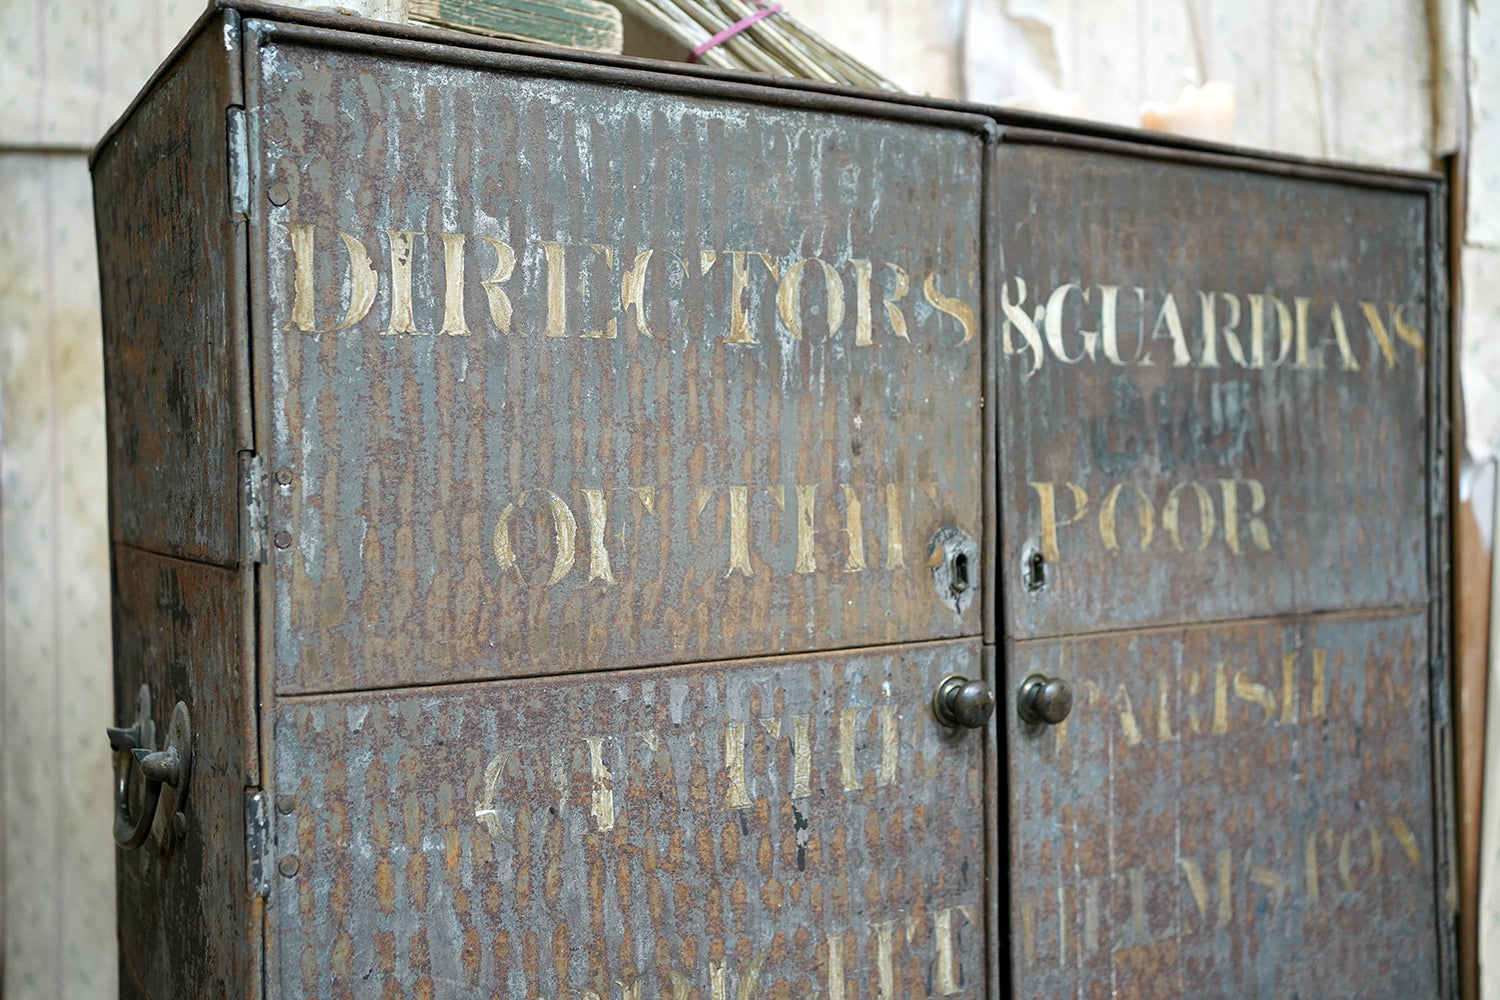 DIRECTORS &GUARDIANS
OF THE POOR
OF THE PARISH
BRIGHT HELMSTON